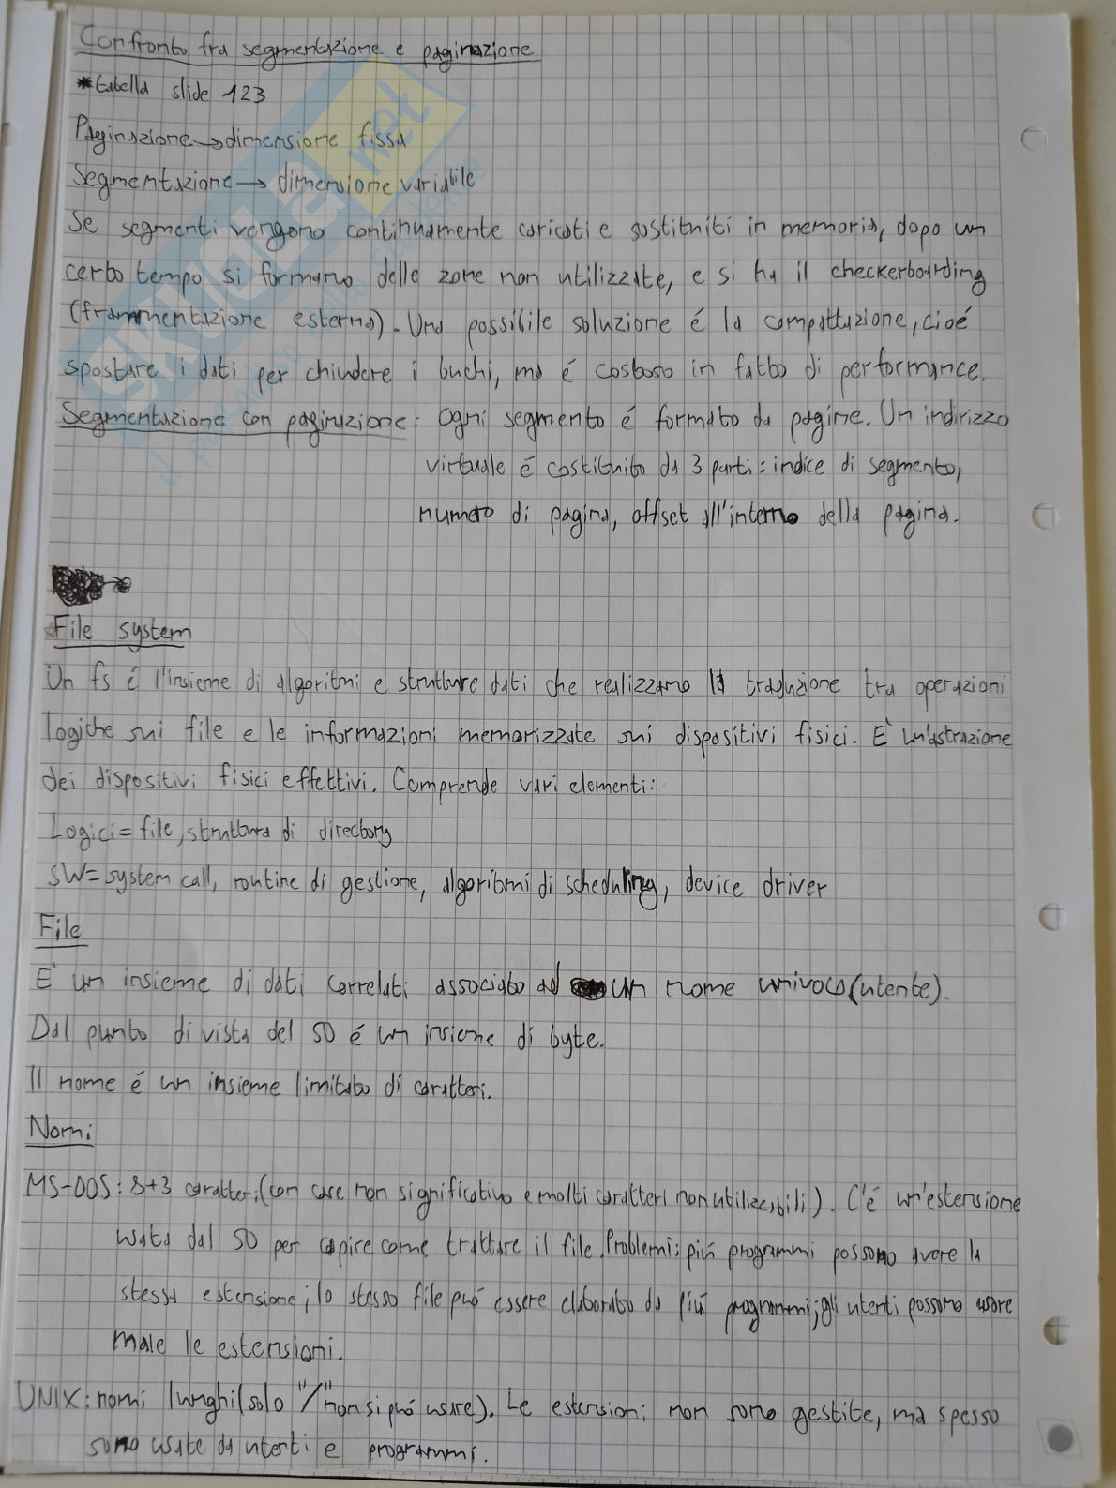 Confronto fra segmentazione e paginazione
*tabella slide 123
Paginazione→dimensione fissa
Segmentazione→ dimensione variabile
Se segmenti vengono continuamente caricati e sostituiti in memoria, dopo un
certo tempo si formano delle zone non utilizzate, e si ha il checkerboarding
(frammentazione esterna). Una possibile soluzione é la compattazione, cioé
spostare i dati per chiudere i buchi, ma é costoso in fatto di performance.
Segmentazione con paginazione: Ogni segmento é formato da pagine. Un indirizzo
virtuale é costituito da 3 parti: indice di segmento,
numero di pagina, offset all'interno della pagina.
File system
Un fs é l'insieme di algoritmi e strutture dati che realizzano la traduzione tra operazioni
logiche sui file e le informazioni memorizzate sui dispositivi fisici. E' un'astrazione
dei dispositivi fisici effettivi. Comprende vari elementi:
Logici= file, struttura di directory
SW=system call, routine di gestione, algoritmi di scheduling, device driver
File
E' un insieme di dati correlati associato ad un nome univoco(utente).
Dal punto di vista del SO é un insieme di byte.
Il nome é un insieme limitato di caratteri.
Nomi
MS-DOS: 8+3 caratteri(con case non significativo e molti caratteri non utilizzabili). C'é un'estensione
usata dal SO per capire come trattare il file. Problemi: piú programmi possono avere la
stessa estensione; lo stesso file puó essere elaborato da piú programmi; gli utenti possono usare
male le estensioni.
UNIX: nomi lunghi(solo "/" non si puó usare). Le estensioni non sono gestite, ma spesso
sono usate da utenti e programmi.
skuola.net